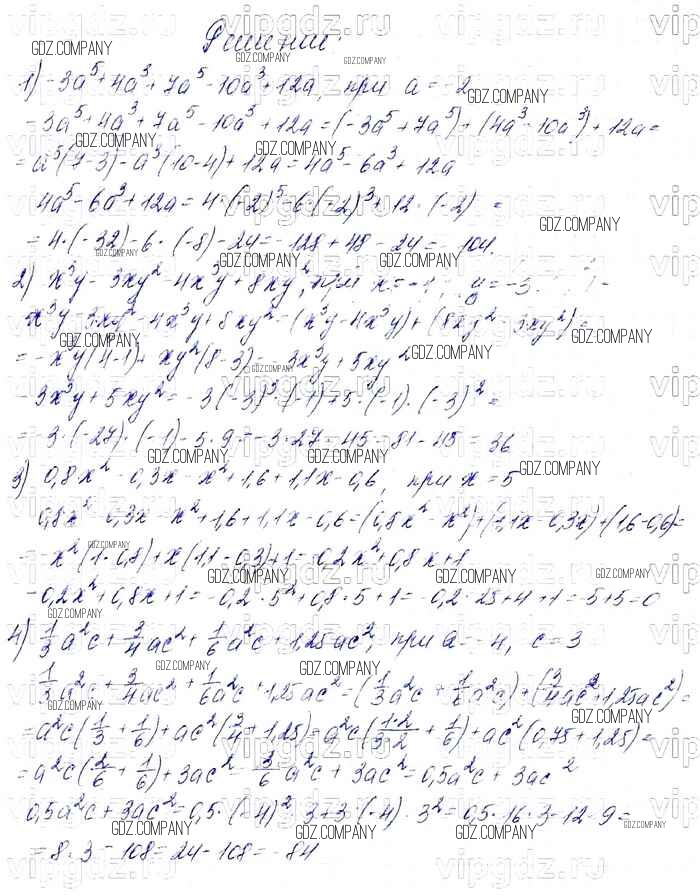 Решение:
1) -3a⁵+4a³+7a⁵-10a³+12a, при a=-2
-3a⁵+4a³+7a⁵-10a³+12a=(-3a⁵+7a⁵)+(4a³-10a³)+12a=
=a⁵(7-3)-a³(10-4)+12a=4a⁵-6a³+12a
4a⁵-6a³+12a=4·(-2)⁵-6·(-2)³+12·(-2)=
=4·(-32)-6·(-8)-24=-128+48-24=-104.
2) x³y-3xy²-4x³y+8xy², при x=-1, y=-3.
x³y-3xy²-4x³y+8xy²=(x³y-4x³y)+(8xy²-3xy²)=
=-x³y(4-1)+xy²(8-3)=-3x³y+5xy²
-3x³y+5xy²=-3(-3)³·(-1)+5·(-1)·(-3)²=
=3·(-27)·(-1)-5·9=-3·27-45=81-45=36
3) 0,8x²-0,3x-x²+1,6+1,1x-0,6, при x=5
0,8x²-0,3x-x²+1,6+1,1x-0,6=(0,8x²-x²)+(1,1x-0,3x)+(1,6-0,6)=
=-x²(1-0,8)+x(1,1-0,3)+1=-0,2x²+0,8x+1
-0,2x²+0,8x+1=-0,2·5²+0,8·5+1=-0,2·25+4+1=-5+5=0
4) 1/3a²c+3/4ac²+1/6a²c+1,25ac², при a=-4, c=3
1/3a²c+3/4ac²+1/6a²c+1,25ac²=(1/3a²c+1/6a²c)+(3/4ac²+1,25ac²)=
=a²c(1/3+1/6)+ac²(3/4+1,25)=a²c(1·2/3·2+1/6)+ac²(0,75+1,25)=
=a²c(2/6+1/6)+3ac²=3/6a²c+3ac²=0,5a²c+3ac²
0,5a²c+3ac²=0,5·(-4)²·3+3·(-4)·3²=0,5·16·3-12·9=
=8·3-108=24-108=-84